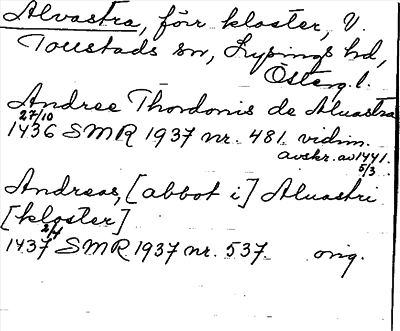 Alvastra, förr kloster, V.
Tollstads sn, Lysings hd,
Österg.l.
Andree Thordonis de Aluastra
27/10
1436 SMR 1937 nr. 481. vidim.
avskr. av 1441.
5/3
Andreas, [abbot i] Aluastri
[kloster]
2/4
1437 SMR 1937 nr. 537. orig.